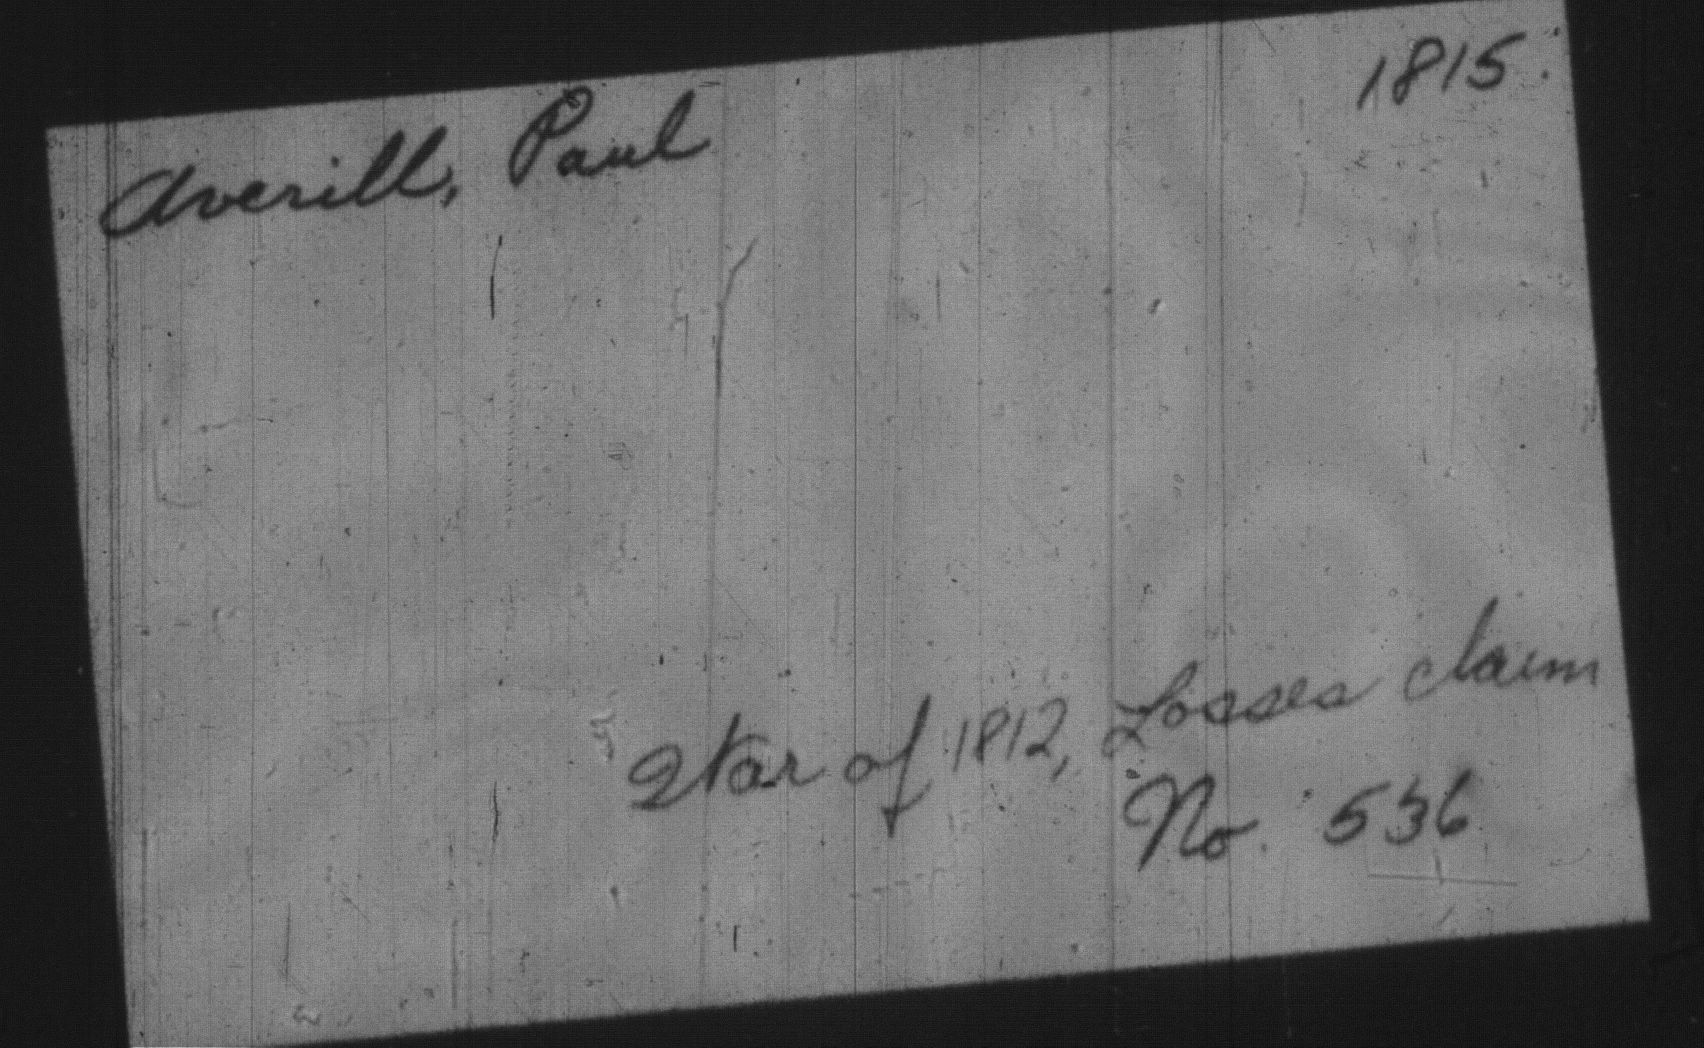 Averill, Paul
1815.
War of 1812, Losses claim
No. 536